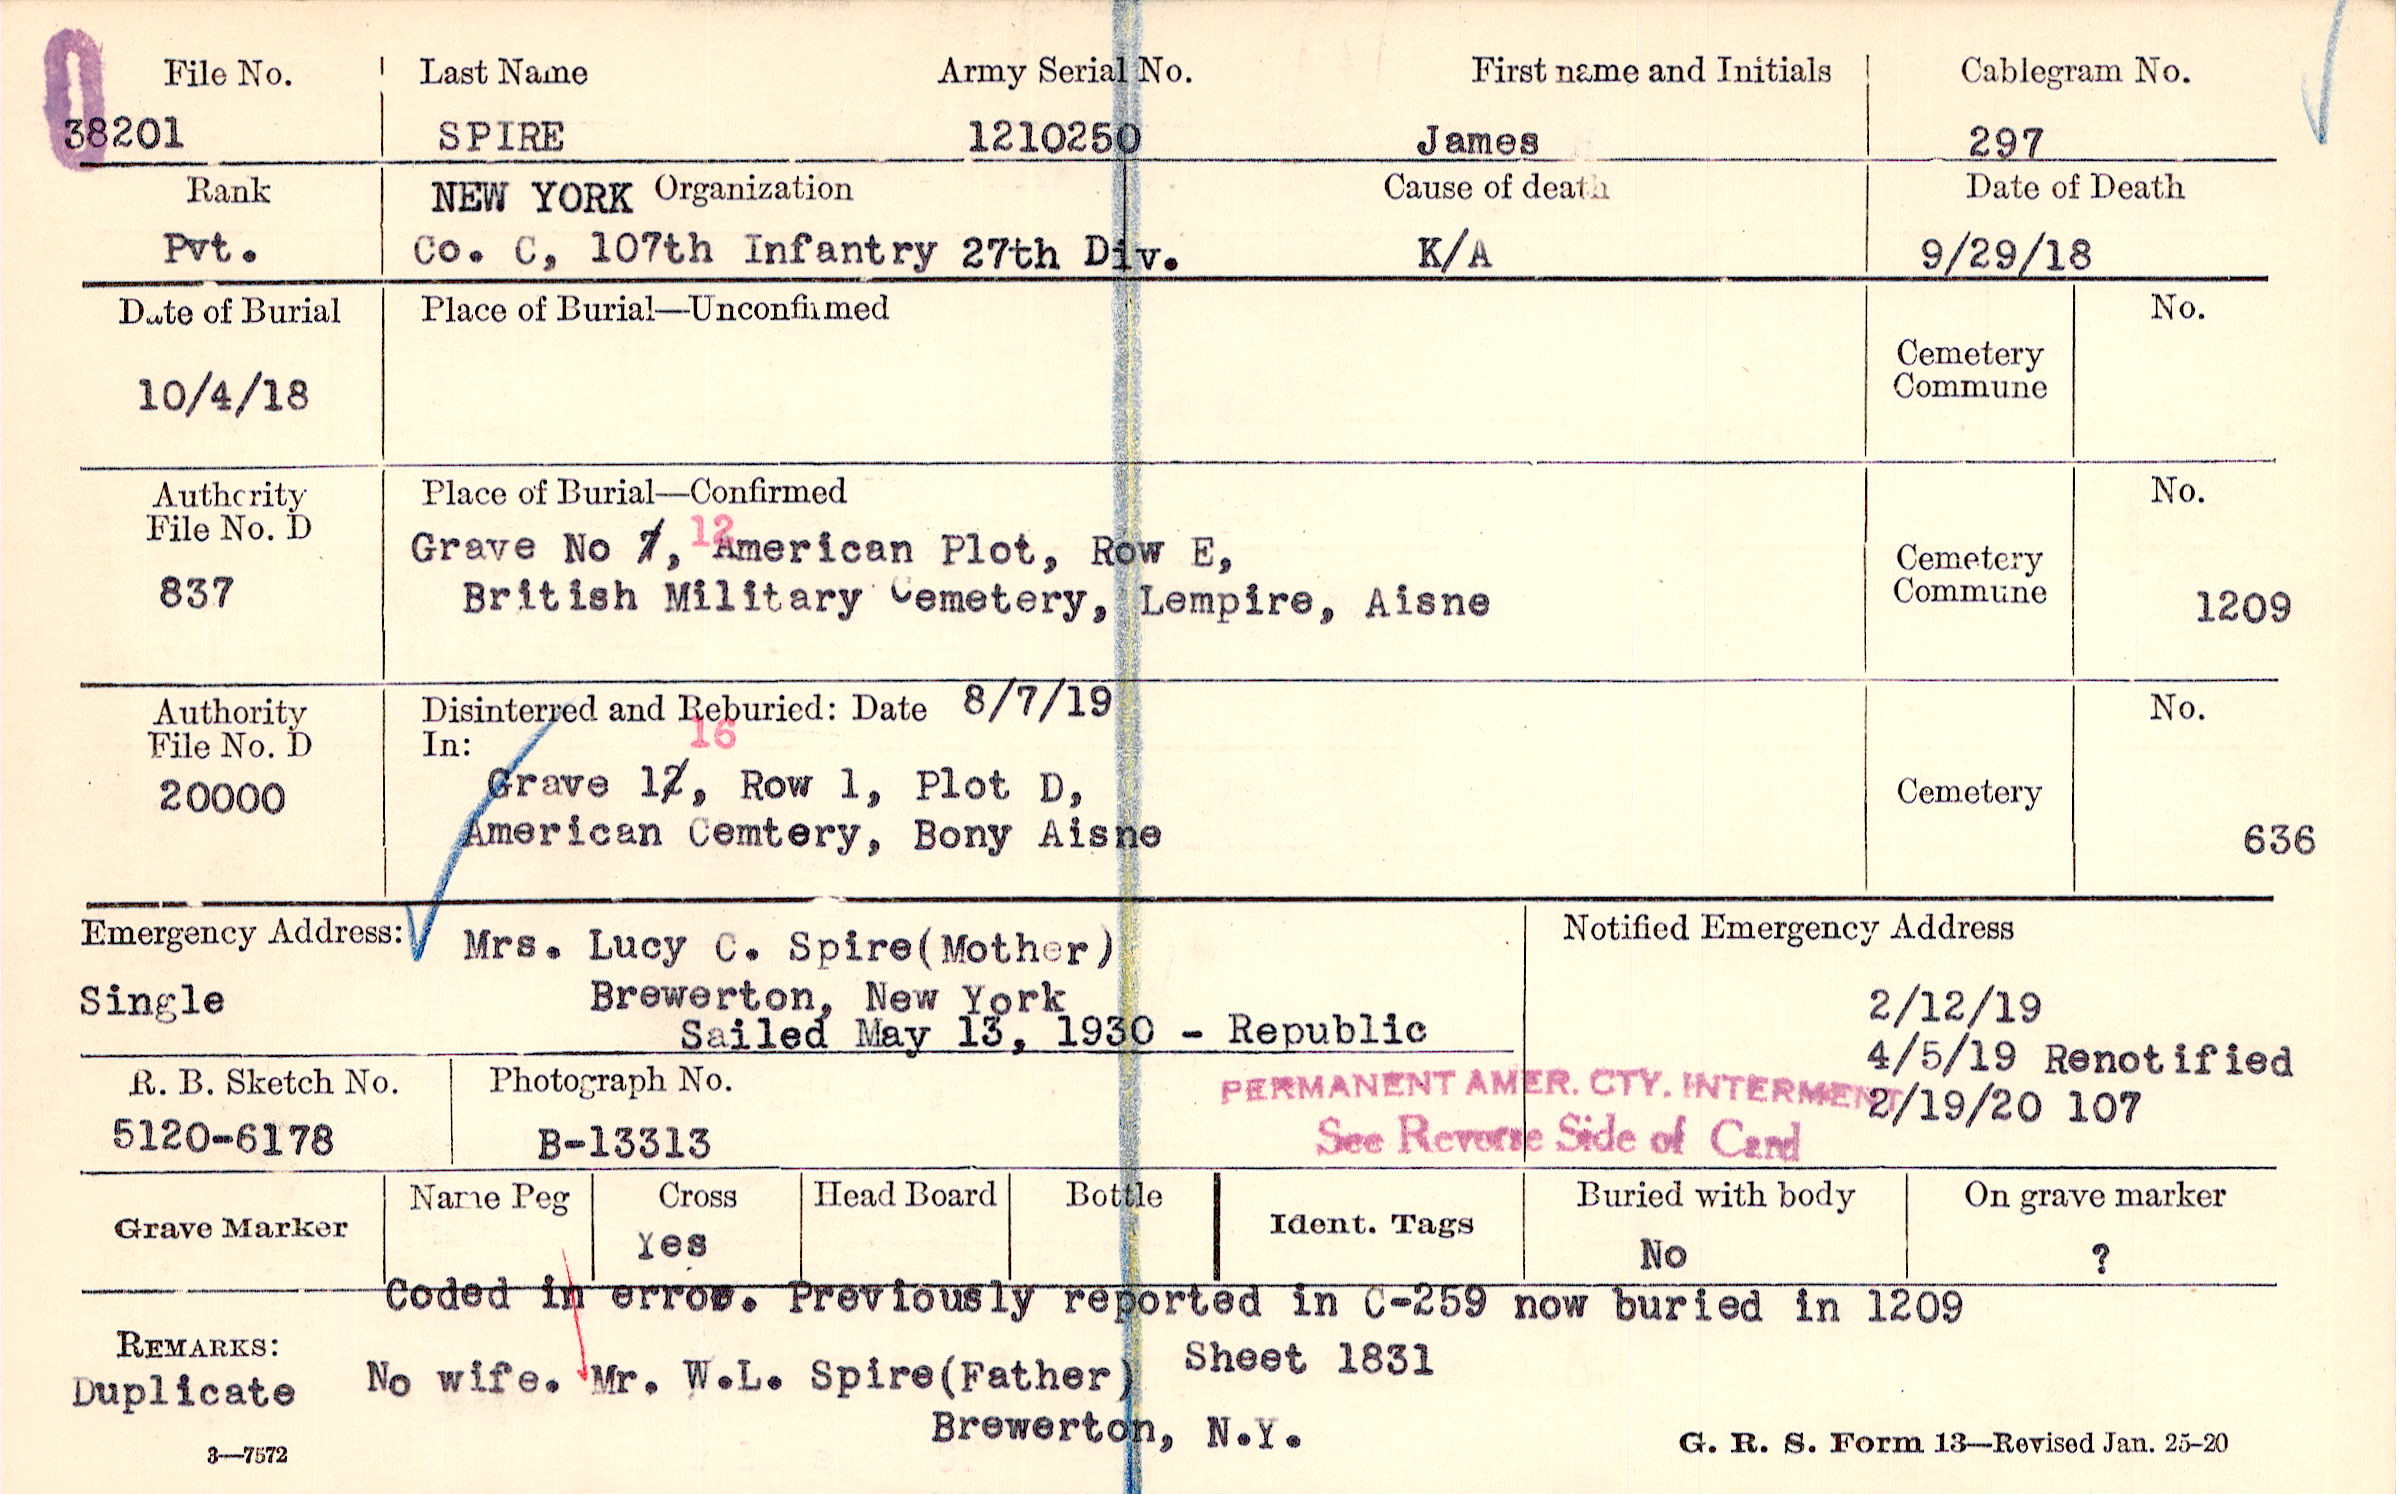 File No. Last Name Army Serial No. First name and Initials Cablegram No.
38201 SPIRE 1210250 James 297
Rank NEW YORK Organization Cause of death Date of Death
Pvt. Co. C, 107th Infantry 27th Div. K/A 9/29/18
Date of Burial Place of Burial—Unconfirmed No.
Cemetery
Commune
10/4/18
Authority Place of Burial—Confirmed No.
File No. D
12
Grave No 7, American Plot, Row E,
Cemetery
Commune
837 British Military Cemetery, Lempire, Aisne 1209
Authority Disinterred and Reburied: Date 8/7/19 No.
File No. D In: 16
20000 Grave 12, Row 1, Plot D, Cemetery
American Cemtery, Bony Aisne 636
Emergency Address: Mrs. Lucy C. Spire(Mother) Notified Emergency Address
Single Brewerton, New York 2/12/19
Sailed May 13, 1930 - Republic
4/5/19 Renotified
R. B. Sketch No. Photograph No. PERMANENT AMER. CTY. INTERMENT 2/19/20 107
5120-6178 B-13313 See Reverse Side of Card
Grave Marker Name Peg Cross Head Board Bottle Ident. Tags Buried with body On grave marker
Yes No ?
Coded in error. Previously reported in C-259 now buried in 1209
REMARKS: Sheet 1831
Duplicate No wife. Mr. W.L. Spire(Father)
Brewerton, N.Y.
3—7572 G. R. S. Form 13—Revised Jan. 25-20